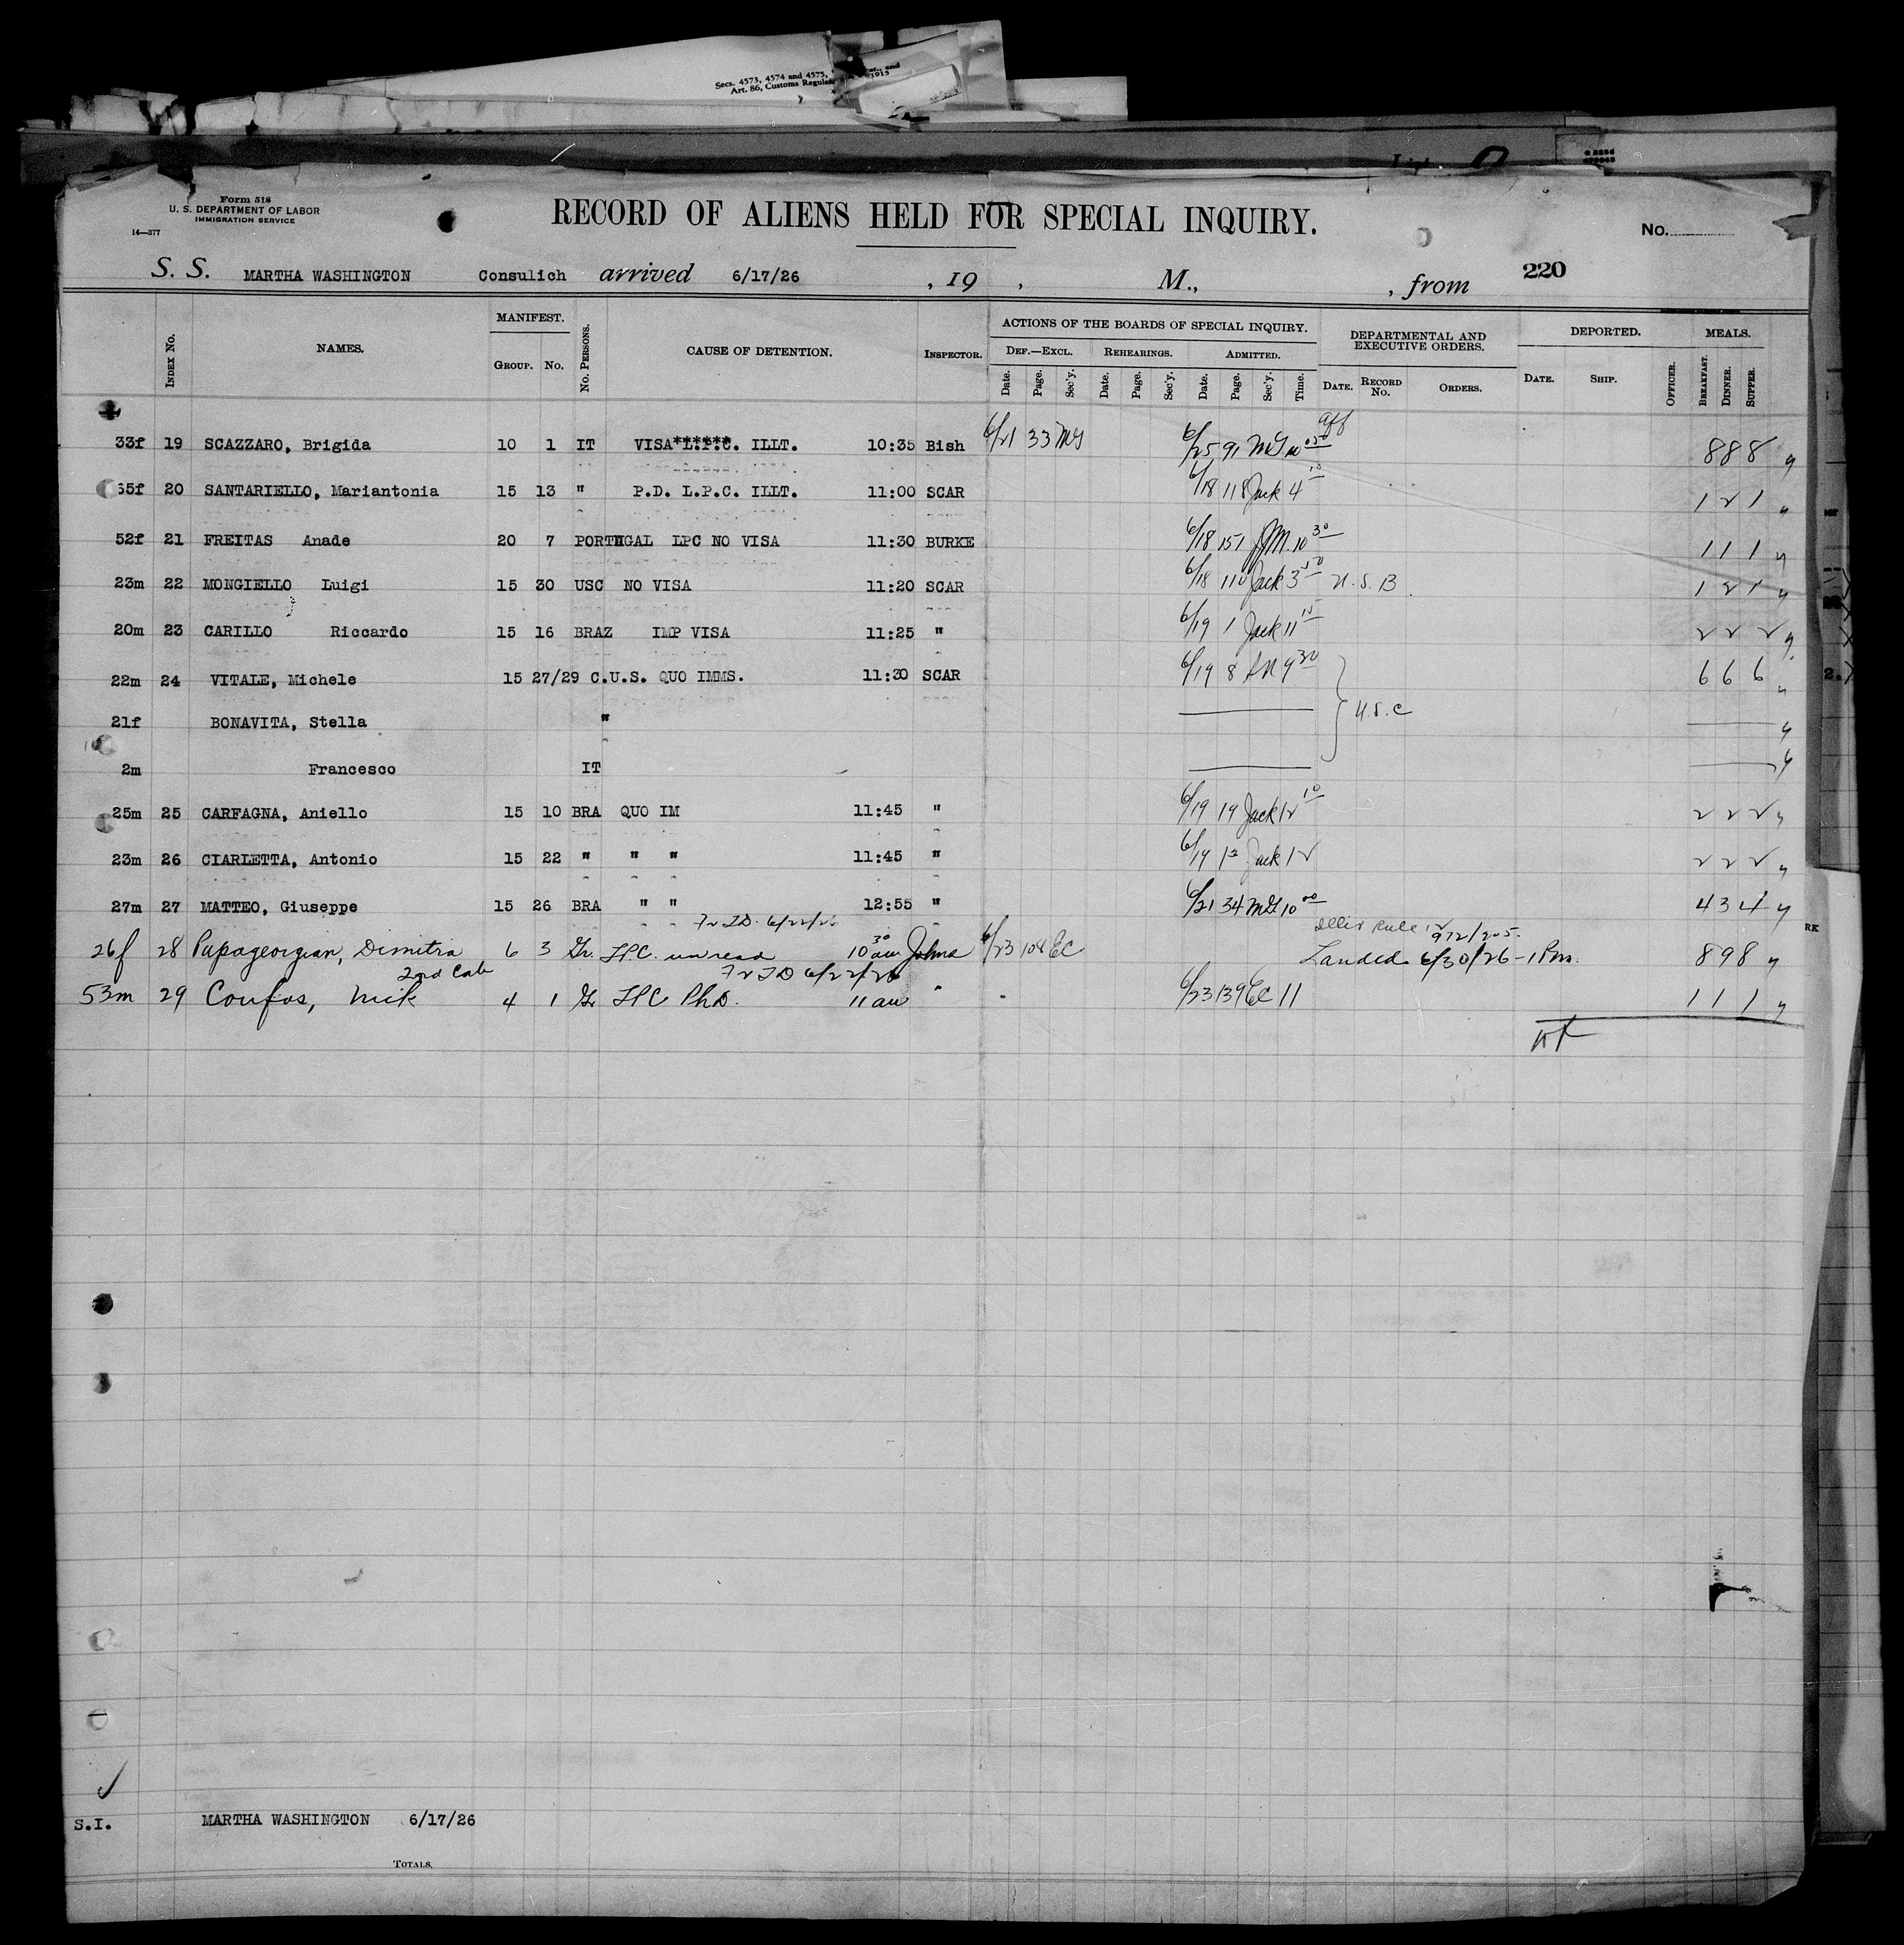 Secs. 4573, 4574 and 4575, and
Art. 86, Customs Regulas 1915
Form 518
U. S. DEPARTMENT OF LABOR
IMMIGRATION SERVICE
14—377
RECORD OF ALIENS HELD FOR SPECIAL INQUIRY.
No.
S. S. MARTHA WASHINGTON Consulich arrived 6/17/26 , 19 , M., , from 220
INDEX No. NAMES. MANIFEST. GROUP. No. No. PERSONS. CAUSE OF DETENTION. INSPECTOR. ACTIONS OF THE BOARDS OF SPECIAL INQUIRY. DEPARTMENTAL AND EXECUTIVE ORDERS. DEPORTED. MEALS.
DEF.—EXCL. REHEARINGS. ADMITTED.
Date. Page. Sec'y. Date. Page. Sec'y. Date. Page. Sec'y. Time. DATE. RECORD No. ORDERS. DATE. SHIP. OFFICER. BREAKFAST. DINNER. SUPPER.
33f 19 SCAZZARO, Brigida 10 1 IT VISA****** L.P.C. ILLT. 10:35 Bish 6/21 33 McG 6/25 91 McG 10 aff 8 8 8 y
65f 20 SANTARIELLO, Mariantonia 15 13 " P.D. L.P.C. ILLT. 11:00 SCAR 6/18 118 Jack 4 1 2 1 y
52f 21 FREITAS Anade 20 7 PORTUGAL LPC NO VISA 11:30 BURKE 6/18 151 10 30 1 1 1 y
23m 22 MONGIELLO Luigi 15 30 USC NO VISA 11:20 SCAR 6/18 110 Jack 3 50 U.S.B. 1 2 1 y
20m 23 CARILLO Riccardo 15 16 BRAZ IMP VISA 11:25 " 6/19 1 Jack 11 15 2 2 2 y
22m 24 VITALE, Michele 15 27/29 C.U.S. QUO IMMS. 11:30 SCAR 6/19 8 9 30 6 6 6 y
21f BONAVITA, Stella " U.S.C y
2m Francesco IT y
25m 25 CARFAGNA, Aniello 15 10 BRA QUO IM 11:45 " 6/19 19 Jack 12 10 2 2 2 y
23m 26 CIARLETTA, Antonio 15 22 " " " 11:45 " 6/19 12 Jack 12 2 2 2 y
27m 27 MATTEO, Giuseppe 15 26 BRA " " 12:55 " 6/21 34 McG 10 00 4 3 4 y
6/22/26 Rule 972/205.
26f 28 Papageorgian, Dimitra 6 3 Gr. LPC. unread 10 30 am Johns 6/23 108 EC Landed 6/30/26 - 1 Pm. 8 9 8 y
2nd Cab 6/22/26
53m 29 Coufos, Nick 4 1 Gr LPC Ph.D. 11 am " 6/23 139 EC 11 1 1 1 y
S.I. MARTHA WASHINGTON 6/17/26
TOTALS.